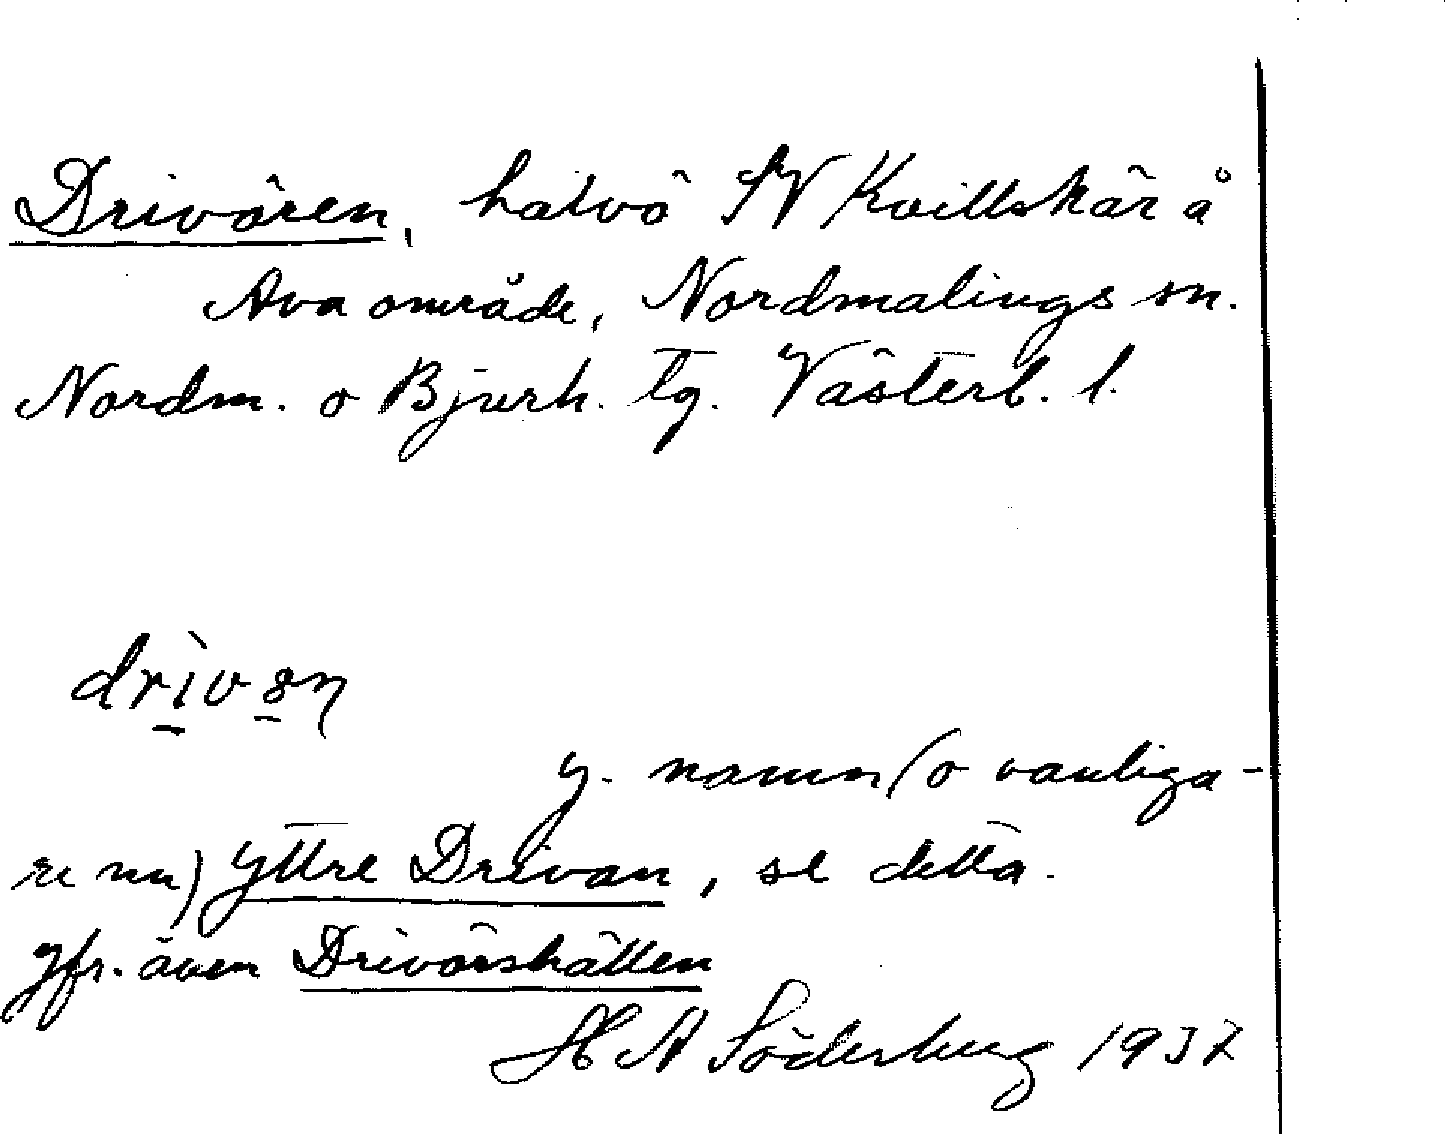 Drivören, halvö SV Kvillskär å
Ava område, Nordmalings sn.
Nordm. o Bjurh. tg. Västerb. l.
y. namn (o vanliga-
re nu) Yttre Drivan, se detta.
Jfr. även Drivörshällen
H A Söderberg 1932